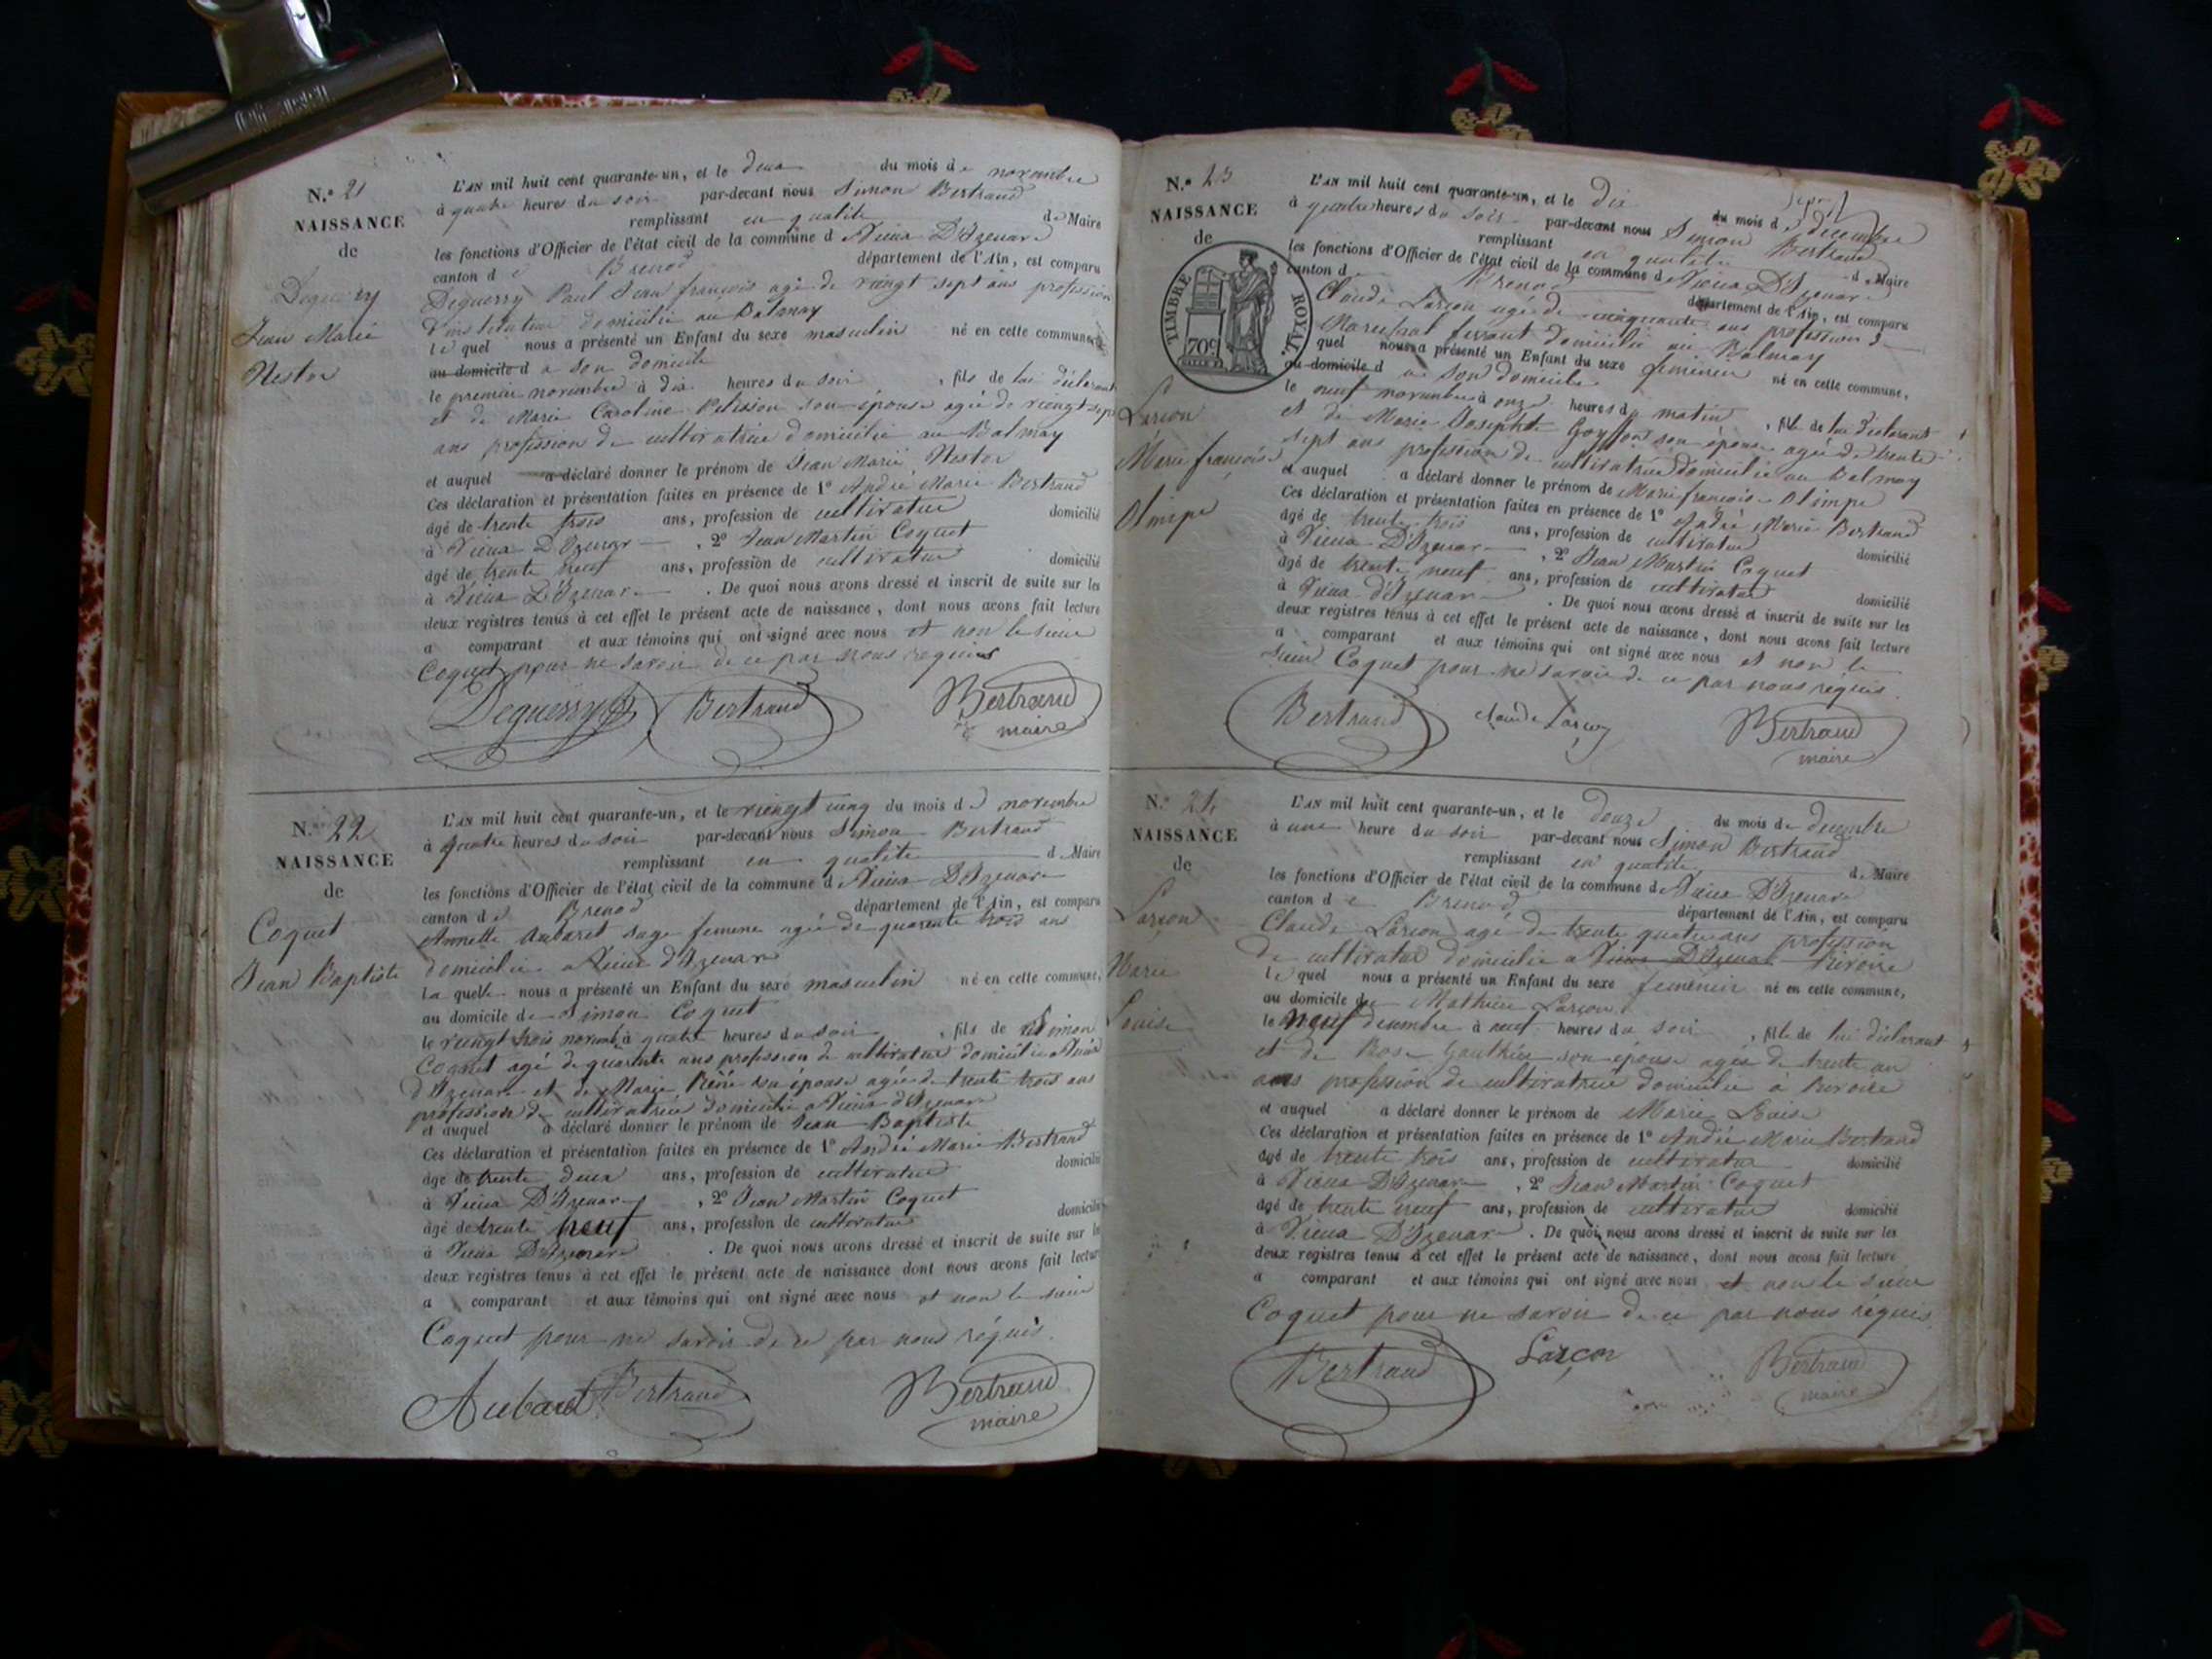 N.° 21
NAISSANCE
de
Deguerry
Jean Marie
Nestor
L'AN mil huit cent quarante-un, et le deux du mois de novembre
à quatre heures du soir par-devant nous Simon Bertrand
remplissant en qualité de Maire
les fonctions d'Officier de l'état civil de la commune d Vieux D'Izenave
canton de Brenod département de l'Ain, est comparu
Deguerry Paul Jean françois agé de vingt sept ans profession
D'instituteur domicilié au Balmay
lequel nous a présenté un Enfant du sexe masculin né en cette commune
au domicile d a son domicile
le premier novembre à dix heures du soir, fils de lui déclarant
et de Marie Caroline Pelisson son épouse agée de vingt sept
ans profession de cultivatrice domicilié au Balmay
et auquel a déclaré donner le prénom de Jean Marie Nestor
Ces déclaration et présentation faites en présence de 1° André Marie Bertrand
âgé de trente trois ans, profession de cultivateur domicilié
à Vieux D'Izenave, 2° Jean Martin Coquet
âgé de trente neuf ans, profession de cultivateur domicilié
à Vieux D'Izenave. De quoi nous avons dressé et inscrit de suite sur les
deux registres tenus à cet effet le présent acte de naissance, dont nous avons fait lecture
a comparant et aux témoins qui ont signé avec nous et non le sieur
Coquet pour ne savoir de ce par nous requis
Deguerry Bertrand Bertrand
maire
N.° 22
NAISSANCE
de
Coquet
Jean Baptiste
L'AN mil huit cent quarante-un, et le viengt cinq du mois de novembre
à quatre heures du soir par-devant nous Simon Bertrand
remplissant en qualité de Maire
les fonctions d'Officier de l'état civil de la commune d Vieux D'Izenave
canton de Brenod département de l'Ain, est comparu
Annette Aubaret sage femme agée de quarente trois ans
domicilie a Vieux d'Izenave
la quelle nous a présenté un Enfant du sexe masculin né en cette commune,
au domicile de Simon Coquet
le viengt trois novembre à quatre heures du soir, fils de Simon
Coquet agé de quarente ans profession de cultivateur domicilié a Vieux
d'Izenave et de Marie Réné son épouse agée de trente trois ans
profession de cultivatrice domicilie a Vieux d'Izenave
et auquel a déclaré donner le prénom de Jean Baptiste
Ces déclaration et présentation faites en présence de 1° André Marie Bertrand
âgé de trente deux ans, profession de cultivateur domicilié
à Vieux D'Izenave, 2° Jean Martin Coquet
âgé de trente neuf ans, profession de cultivateur domicilié
à Vieux D'Izenave. De quoi nous avons dressé et inscrit de suite sur les
deux registres tenus à cet effet le présent acte de naissance dont nous avons fait lecture
a comparant et aux témoins qui ont signé avec nous et non le sieur
Coquet pour ne savoir de ce par nous réquis.
Aubaret Bertrand Bertrand
maire
N.° 23
NAISSANCE
de
TIMBRE ROYAL.
70c
Larçon
Marie françoise
Olimpe
L'AN mil huit cent quarante-un, et le dix du mois de decembre
à quatre heures du soir par-devant nous Simon Bertrand
remplissant en qualité de Maire
les fonctions d'Officier de l'état civil de la commune d Vieux D'Izenave
canton de Brenod département de l'Ain, est comparu
Claude Larçon agé de cinquante ans profession
Marechal ferrant domicilié au Balmay
quel nous a présenté un Enfant du sexe femenin né en cette commune,
au domicile d a son domicile
le neuf novembre à onze heures du matin, fille de lui déclarant
et de Marie Josephte Goyffon son épouse agée de trente
sept ans profession de cultivatrice domicilié au Balmay
et auquel a déclaré donner le prénom de Marie françoise Olimpe
Ces déclaration et présentation faites en présence de 1° André Marie Bertrand
âgé de trente trois ans, profession de cultivateur domicilié
à Vieux D'Izenave, 2° Jean Martin Coquet
âgé de trente neuf ans, profession de cultivateur domicilié
à Vieux d'Izenave. De quoi nous avons dressé et inscrit de suite sur les
deux registres tenus à cet effet le présent acte de naissance, dont nous avons fait lecture
a comparant et aux témoins qui ont signé avec nous et non le
sieur Coquet pour ne savoir de ce par nous réquis.
Bertrand claude Larçon Bertrand
maire
N.° 24
NAISSANCE
de
Larçon
Marie
Louise
L'AN mil huit cent quarante-un, et le douze du mois de decembre
à une heure du soir par-devant nous Simon Bertrand
remplissant en qualité de Maire
les fonctions d'Officier de l'état civil de la commune de Vieux D'Izenave
canton de Brenod département de l'Ain, est comparu
Claude Larçon agé de trente quatre ans profession
de cultivateur domicilie a Vieux D'Izenave
lequel nous a présenté un Enfant du sexe femenin né en cette commune,
au domicile de Mathieu Larçon
le neuf decembre à neuf heures du soir, fille de lui déclarant
et de Rose Gauthier son épouse agée de trente un
ans profession de cultivatrice domicilie a
et auquel a déclaré donner le prénom de Marie Louise
Ces déclaration et présentation faites en présence de 1° André Marie Bertrand
âgé de trente trois ans, profession de cultivateur domicilié
à Vieux D'Izenave, 2° Jean Martin Coquet
âgé de trente neuf ans, profession de cultivateur domicilié
à Vieux D'Izenave. De quoi nous avons dressé et inscrit de suite sur les
deux registres tenus à cet effet le présent acte de naissance, dont nous avons fait lecture
a comparant et aux témoins qui ont signé avec nous et non le sieur
Coquet pour ne savoir de ce par nous réquis.
Bertrand Larçon Bertrand
maire